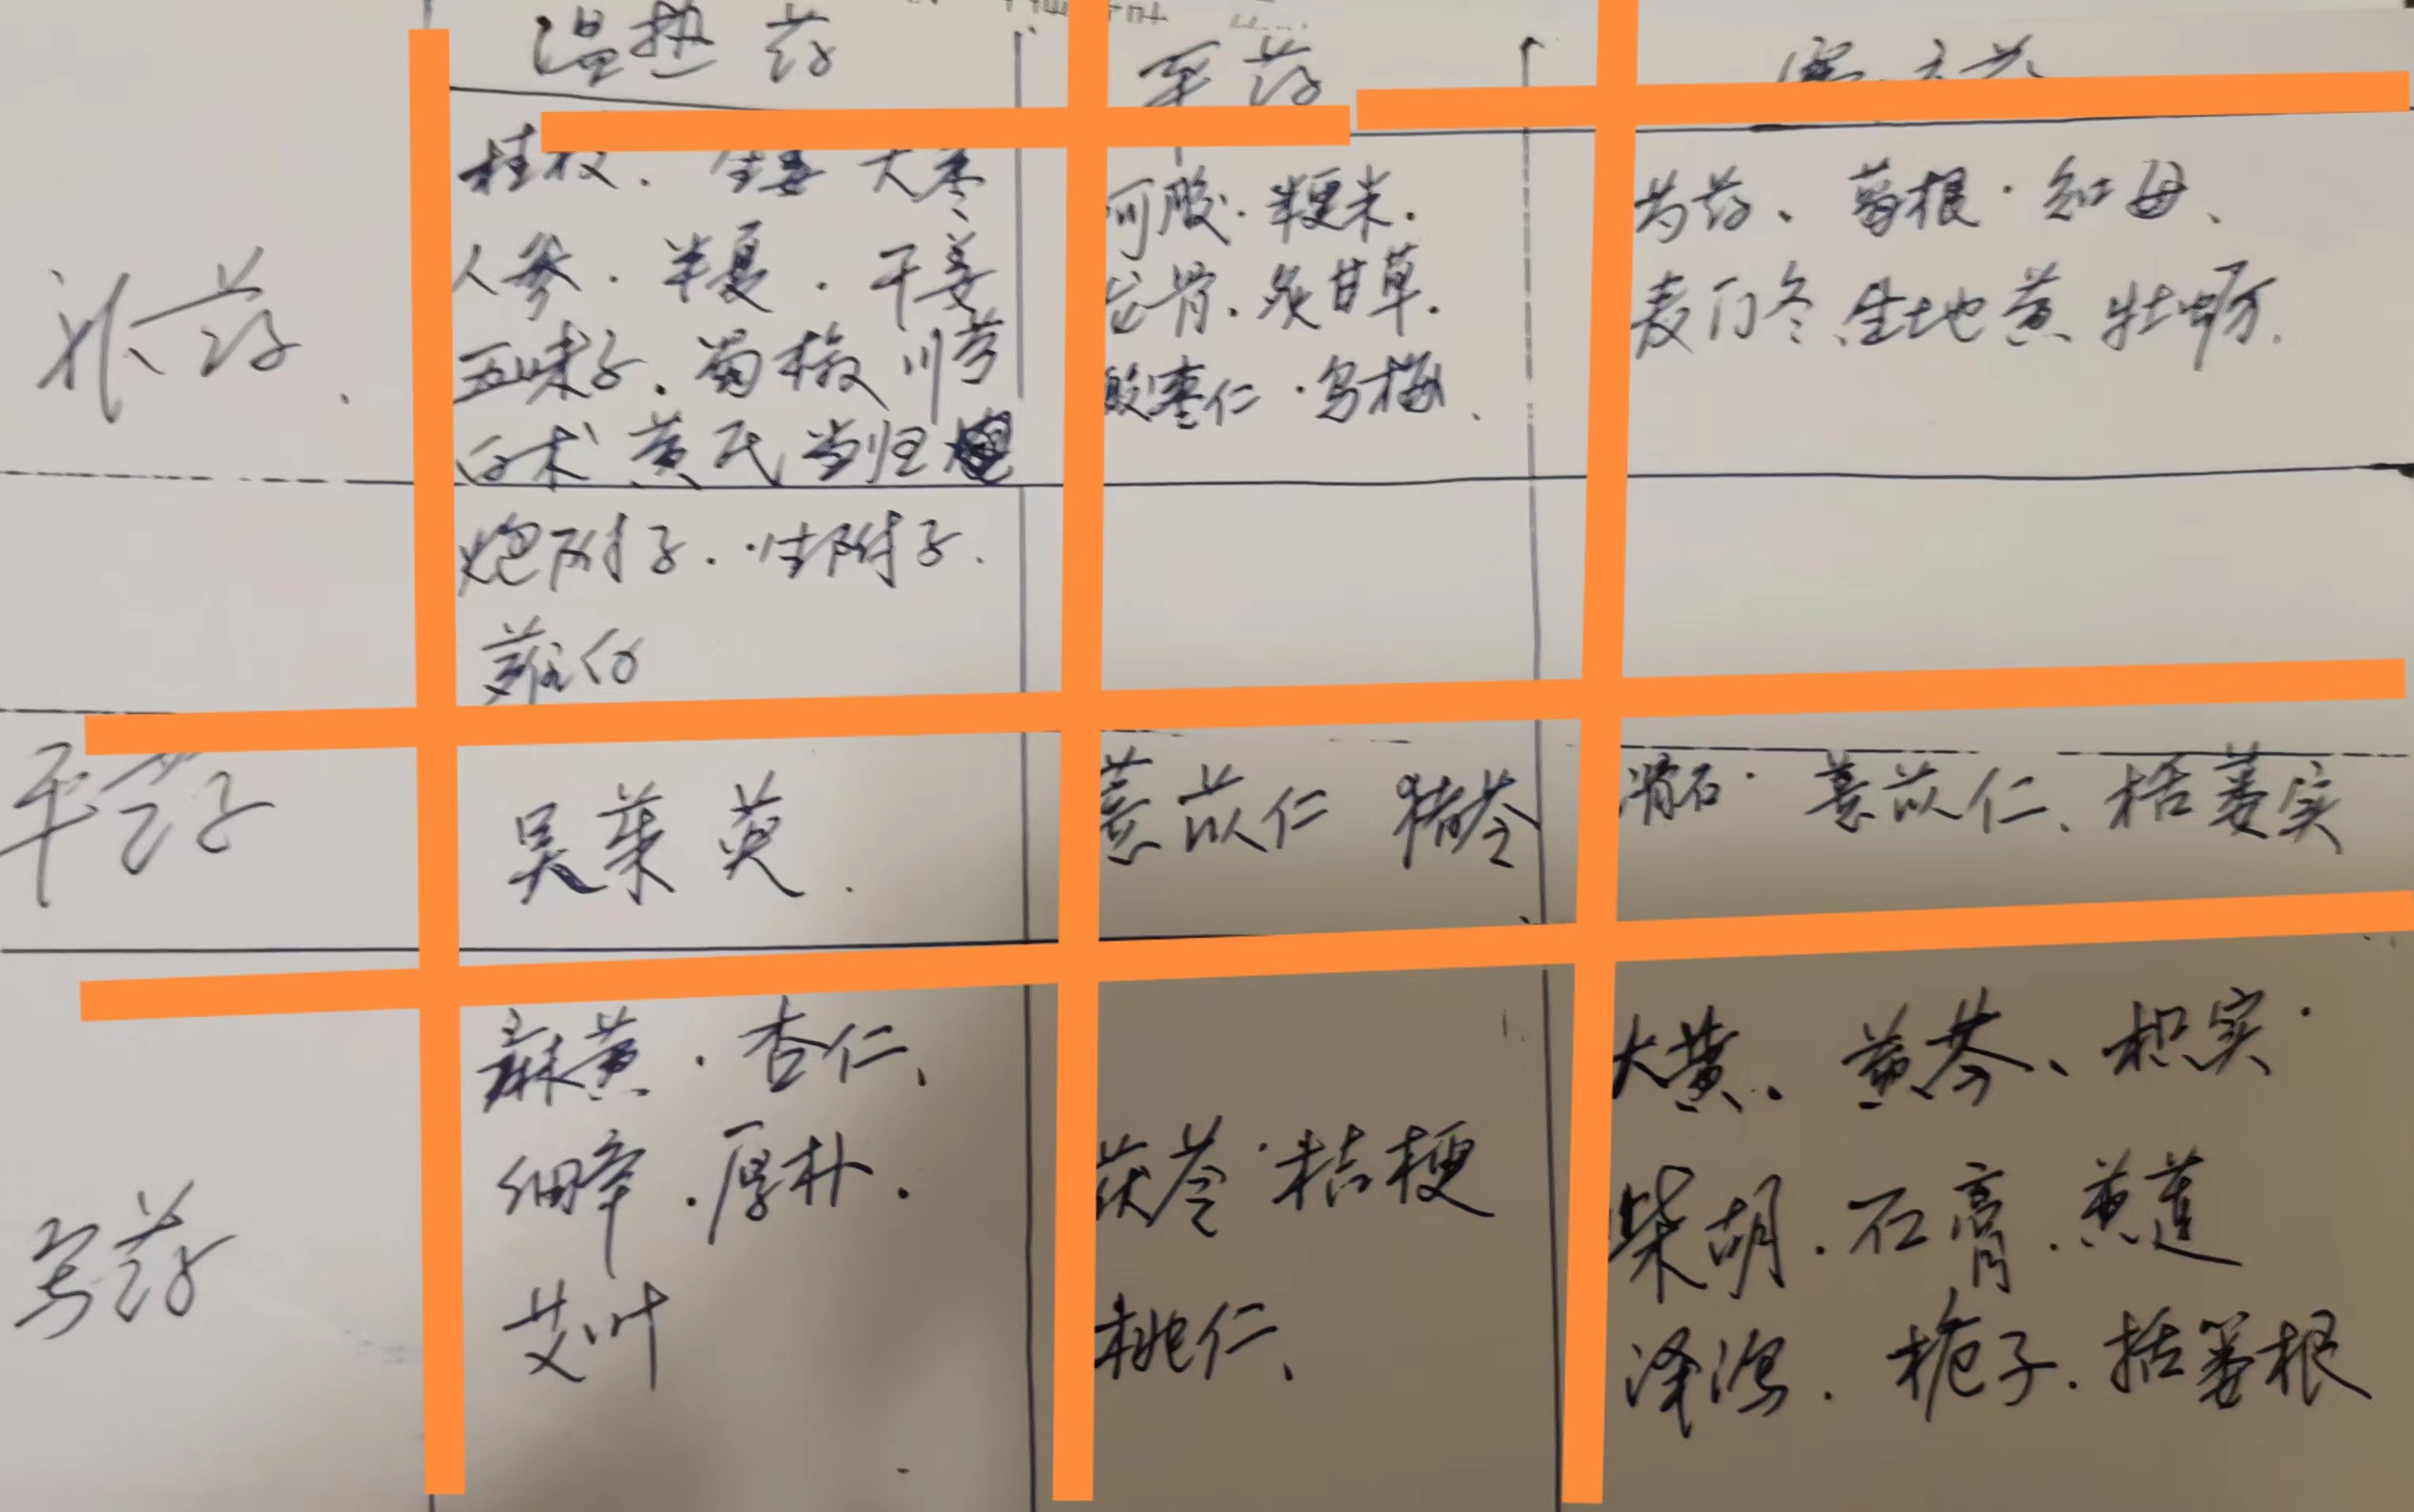 温热药 平药 寒凉药
补药
桂枝. 生姜 大枣 阿胶. 粳米. 芍药、葛根. 知母、
人参. 半夏. 干姜 龙骨. 炙甘草. 麦门冬、生地黄、牡蛎.
五味子. 蜀椒 川芎 酸枣仁. 乌梅、
白术 黄氏 当归
炮附子. 生附子.
薤白
平药 吴茱萸. 薏苡仁 猪苓 滑石. 薏苡仁、栝蒌实
写药
麻黄. 杏仁、 大黄、黄芩、枳实.
细辛. 厚朴. 茯苓. 桔梗 柴胡. 石膏. 黄莲
艾叶 桃仁、 泽泻. 栀子. 括蒌根